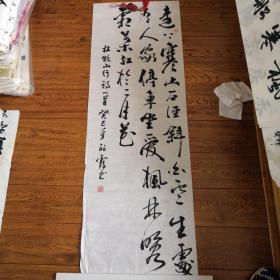 遠上寒山石径斜白雲生處
有人家停車坐爱楓林晚
霜葉紅於二月花
杜牧山行詩一首癸巳